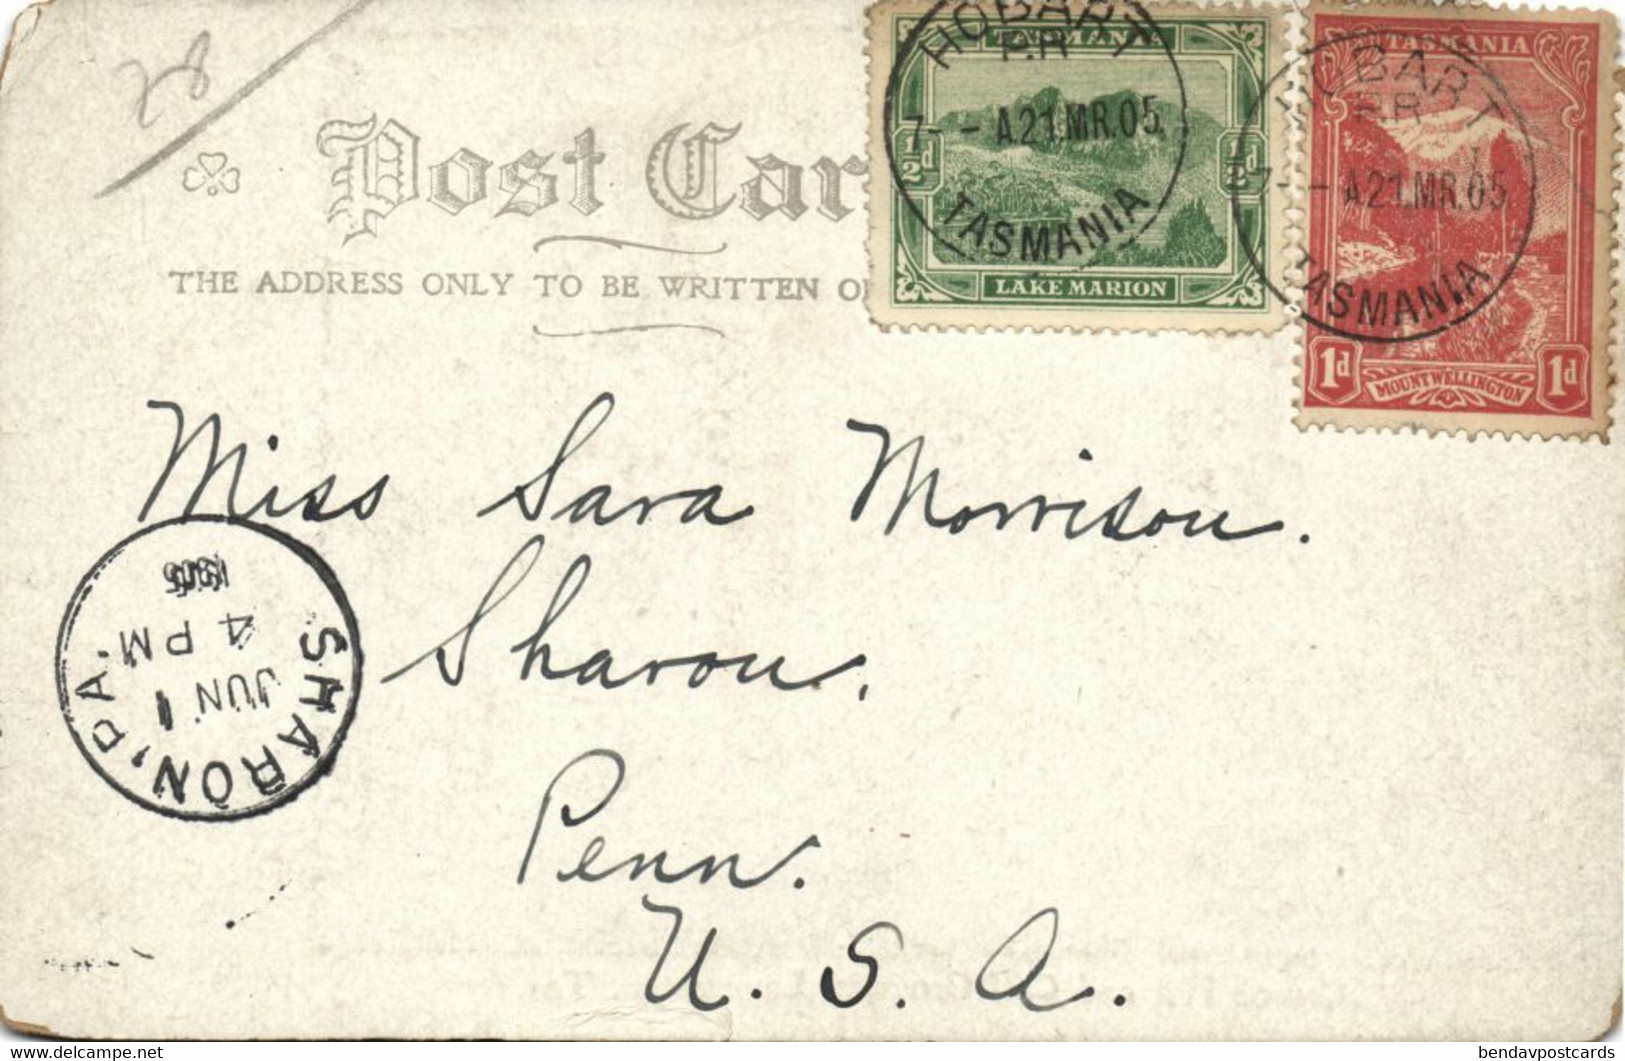 28
Post Car
THE ADDRESS ONLY TO BE WRITTEN O
TASMANIA
HOBART
P.R
7- - A21.MR.05.
TASMANIA
½d ½d
LAKE MARION
TASMANIA
HOBART
P.R
7- - A21.MR.05.
TASMANIA
1d 1d
MOUNT WELLINGTON
Miss Sara Morrison.
Sharon.
Penn.
U. S. A.
SHARON, PA.
JUN 1
4 PM
1905
delcampe.net
bendavpostcards